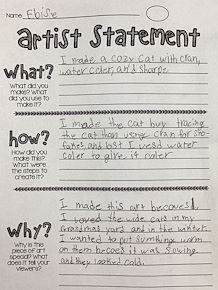 Name: Ebise
artist Statement
What?
What did you make? What did you use to make it?
I made a cozy cat with cran,
water coler, and sharpe
how?
How did you make this? What were the steps to create it?
I made the cat buy tracing
the cat than using cran for sno-
fakes, and last I uesd water
coler to give it coler
Why?
Why is this piece of art special? What does it tell your viewers?
I made this art becaves
I loved the wide cats in my
Grandmas yard and in the winter.
I wanted to put sumthing worm
on them becaes it was sowing
and they looked cold.